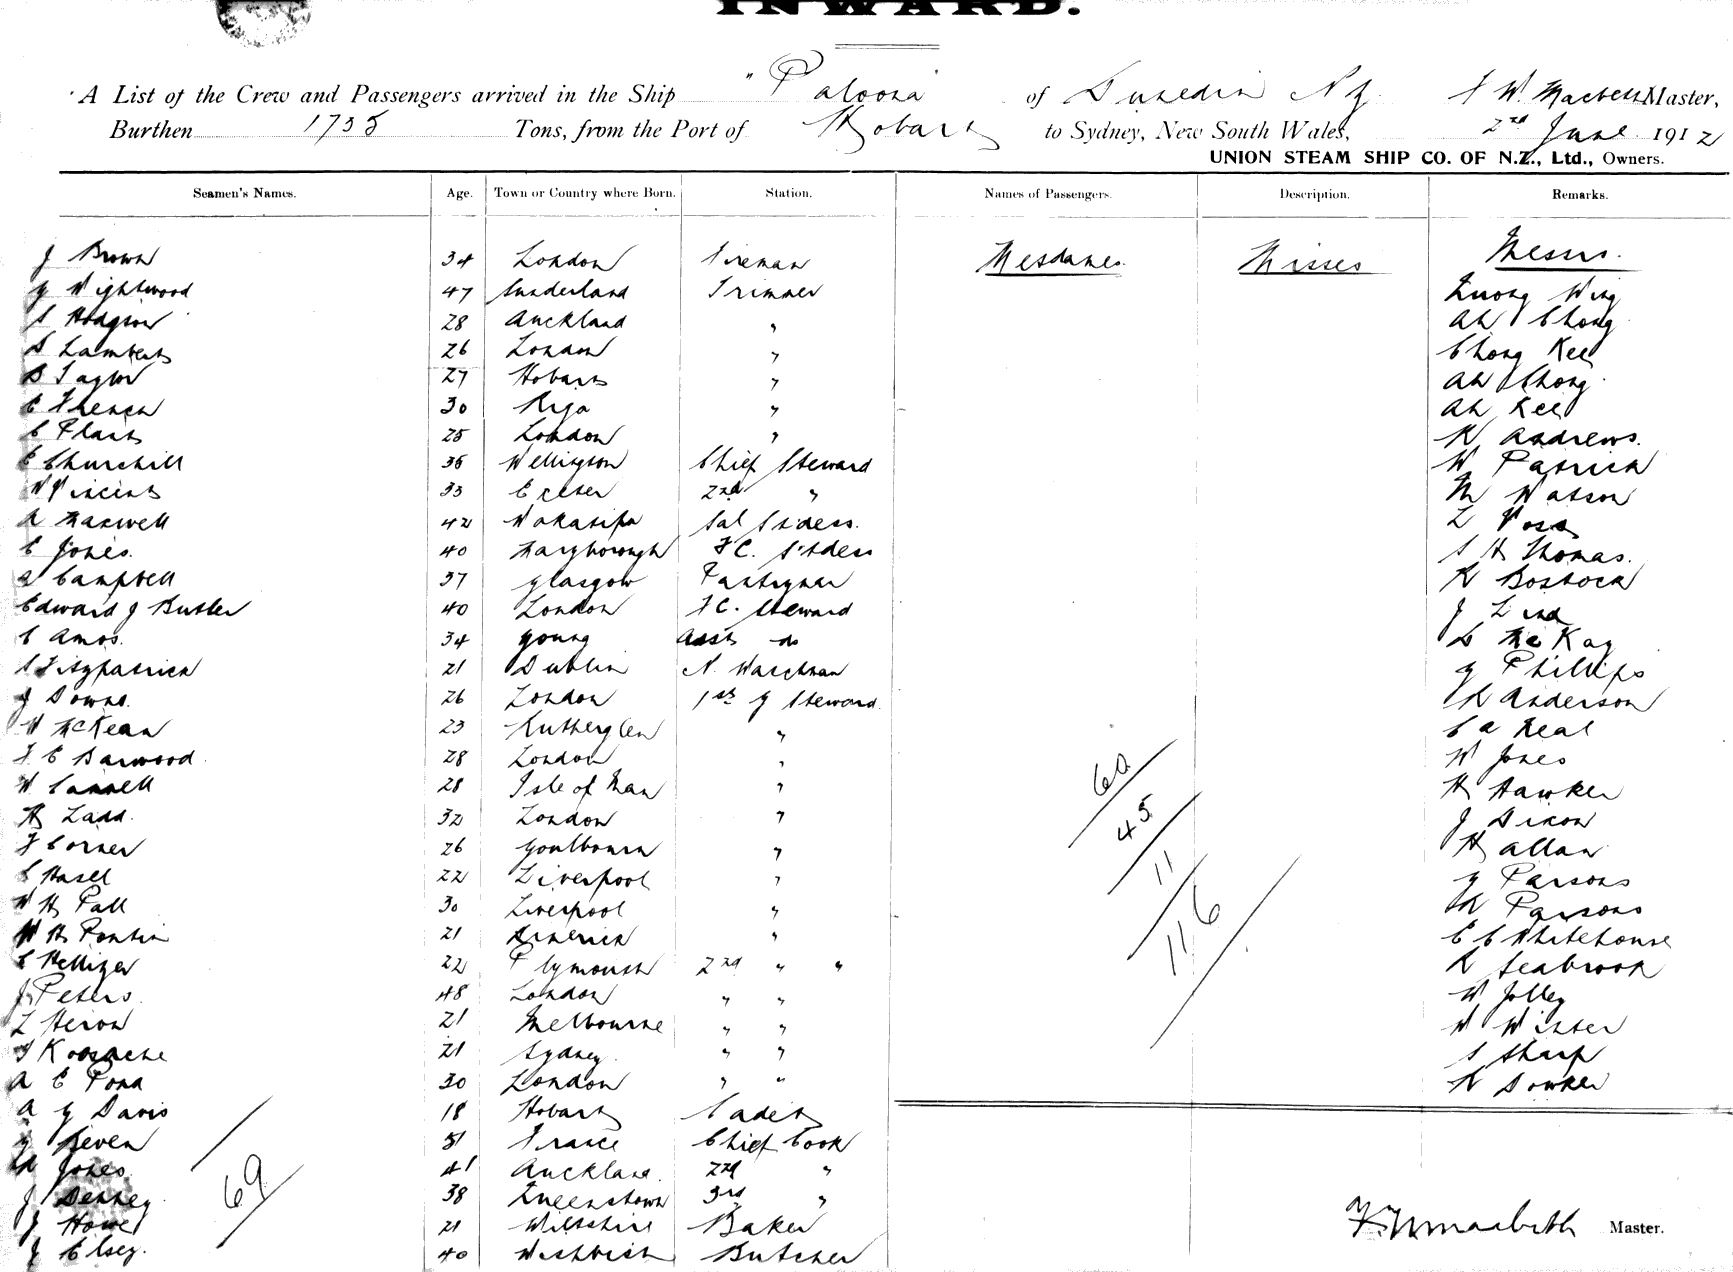 INWARD.
A List of the Crew and Passengers arrived in the Ship "Paloona" of Dunedin NZ F W Macbeth Master,
Burthen 1735 Tons, from the Port of Hobart to Sydney, New South Wales, 2nd June 1912
UNION STEAM SHIP CO. OF N.Z., Ltd., Owners.
Seamen's Names. Age. Town or Country where Born. Station. Names of Passengers. Description. Remarks.
J Brown 34 London Fireman Mesdames. Misses Messrs.
G Wightwood 47 Sunderland Trimmer Quong Wing
S Hodgson 28 Auckland " Ah Chong
S Lambert 26 London " Chong Kee
B Taylor 27 Hobart " Ah Chong
C French 30 Riga " Ah Kee
C Plant 25 London " R Andrews.
C Churchill 36 Wellington Chief Steward W Patrick
W Vincent 33 Exeter 2nd " M Watson
A Maxwell 42 Wakatipu Sal Stdess. L Voss
C Jones. 40 Maryborough F.C. Stdess S H Thomas.
A Campbell 37 Glasgow Pantryman R Bostock
Edward J Butler 40 London F.C. Steward J Lind
C Amos. 34 Young Asst do D McKay
S Fitzpatrick 21 Dublin N. Watchman G Phillips
J Downs. 26 London 1st G Steward R Anderson
W McKean 23 Rutherglen " C A Neal
F C Barwood 28 London " W Jones
W Cannell 28 Isle of Man " H Hawker
H Ladd. 32 London " J Dixon
F Corner 26 Goulbourn " H Allan
C Hasell 22 Liverpool " G Parsons
W H Pall 30 Liverpool " R Parsons
W H Pontin 21 Limerick " C C Whitehouse
C Hellizer 22 Plymouth 2nd " " R Seabrook
J Peters. 48 London " " W Jolley
L Heron 21 Melbourne " " W Winter
21 Sydney. " " S Sharp
A E Pond 30 London " " R Dowker
A G Davis 18 Hobart Cadet
G Beven 51 France Chief Cook
R Jones. 41 Auckland. 2nd "
J Denney 38 Queenstown 3rd "
J Howe 21 Wiltshire Baker
J Elsey. 40 Wishbich Butcher
60
45
11
116
69
F W Macbeth Master.